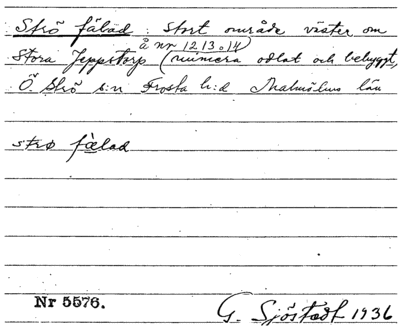 Strö fälad : stort område väster om
å nr 12 13 o 14
Stora Jeppstorp (numera odlat och bebyggt,
Ö. Strö s:n Frosta h:d Malmöhus län
strø fælad
Nr 5576.
G. Sjöstedt 1936